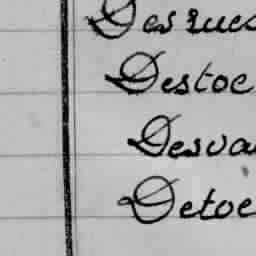 Desrues
Destoc
Desva
Detoc